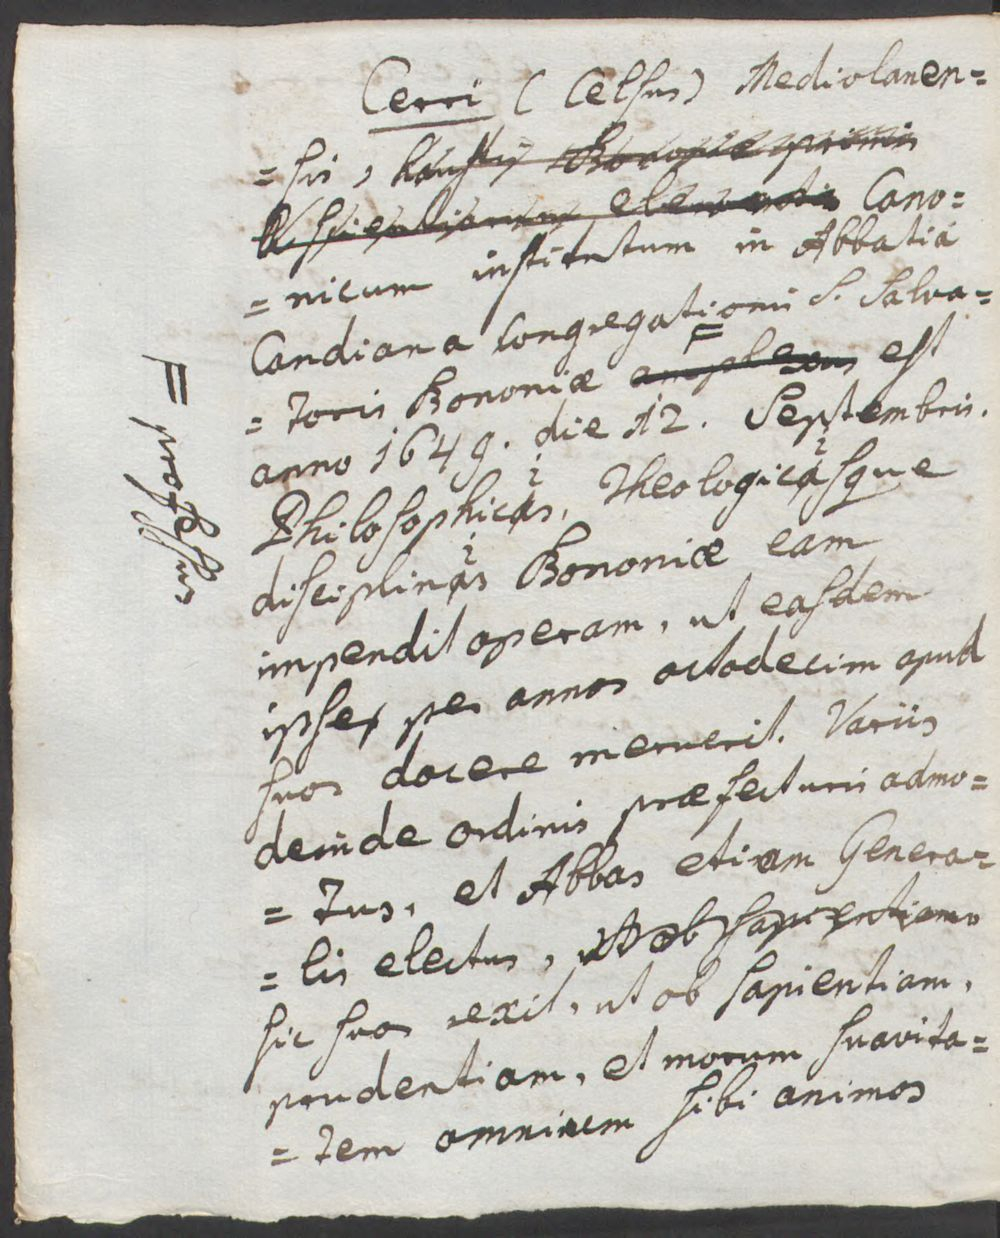 Cerri (Celsus) Mediolanen=
=sis, haustis Bononiæ primis
scientiarum elementis Cano=
=nicum institutum in Abbatiâ
Candiana Congregationis S. Salva=
=toris Bononiæ amplexus est
anno 1649. die 12. Septembris.
Philosophicis, Theologicisque
disciplinis Bononiæ eam
impendit operam, ut easdem
ipse per annos octodecim apud
suos docere meruerit. Variis
deinde ordinis præfecturis admo=
=tus, et Abbas etiam Genera=
=lis electus, ut ob sapientiam
sic suos rexit, ut ob sapientiam,
prudentiam, et morum suavita=
=tem omnium sibi animos
F professus